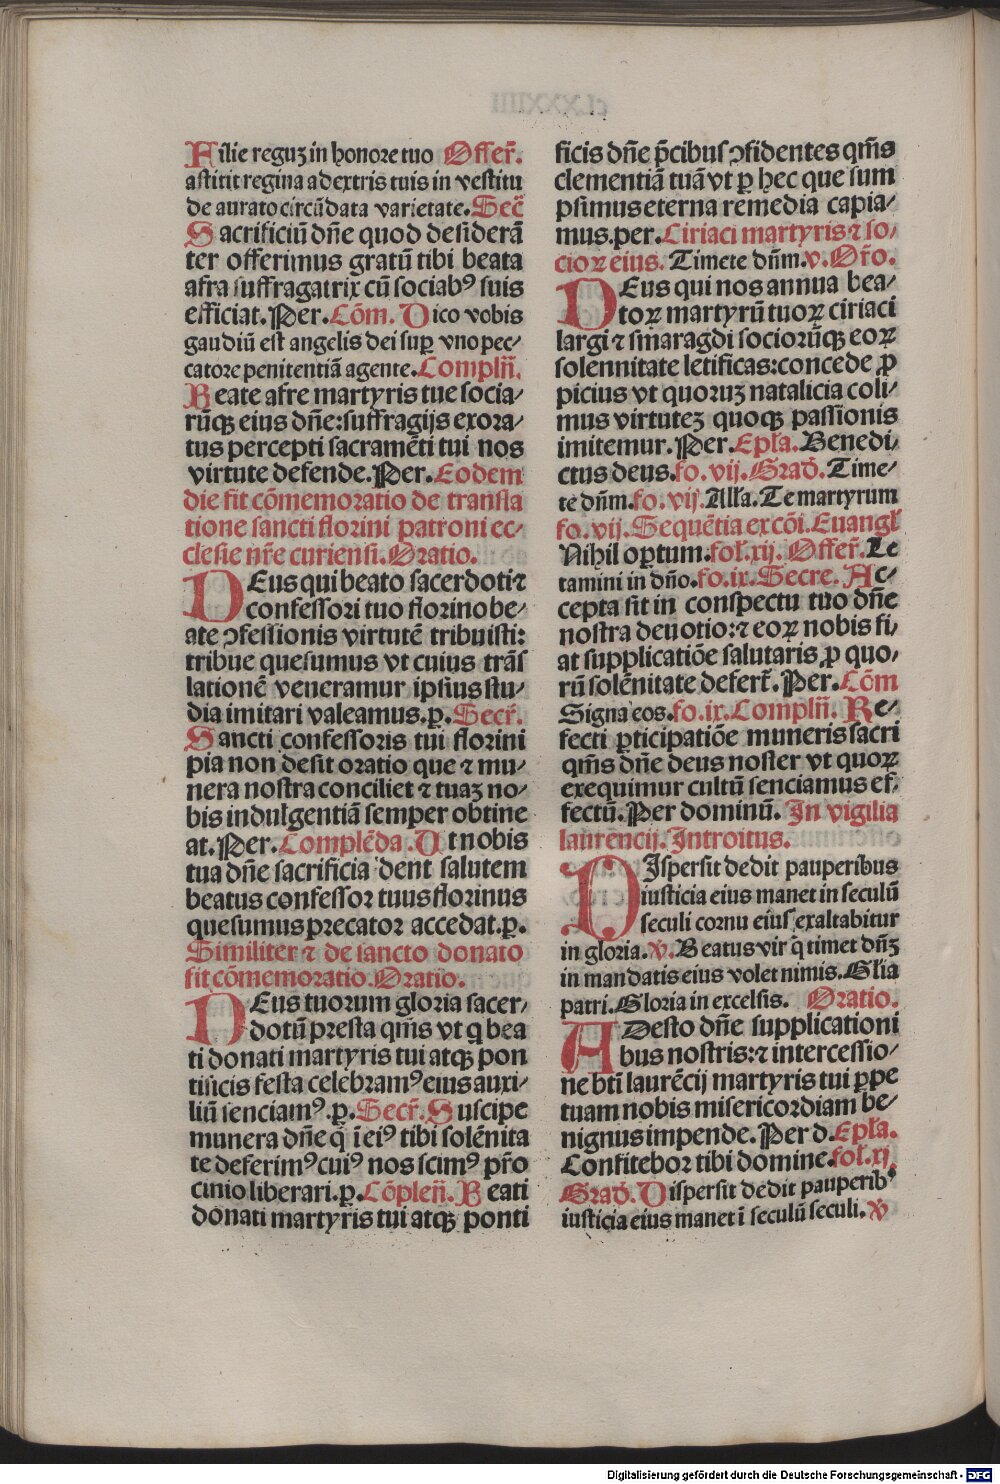 Filie reguʒ in honore tuo Offer̃.
astitit regina a dextris tuis in vestitu
de aurato circũdata varietate. Sec̃
Sacrificiũ dñe quod desiderã
ter offerimus gratũ tibi beata
afra suffragatrix cũ sociabꝰ suis
efficiat. Per. Cõm. Dico vobis
gaudiũ est angelis dei suꝑ vno pec⸗
catore penitentiã agente. Complñ.
Beate afre martyris tue socia⸗
rũqꝫ eius dñe: suffragijs exora⸗
tus percepti sacramẽti tui nos
virtute defende. Per. Eodem
die fit cõmemoratio de transla
tione sancti florini patroni ec⸗
clesie nr̃e curiensi. Oratio.
DEus qui beato sacerdoti ⁊
confessori tuo florino be⸗
ate ↄfessionis virtutẽ tribuisti:
tribue quesumus vt cuius trãs
lationẽ veneramur ipsius stu⸗
dia imitari valeamus. p. Secr̃.
Sancti confessoris tui florini
pia non desit oratio que ⁊ mu⸗
nera nostra conciliet ⁊ tuaʒ no⸗
bis indulgentiã semper obtine
at. Per. Complẽda. Vt nobis
tua dñe sacrificia dent salutem
beatus confessor tuus florinus
quesumus precator accedat. p.
Similiter ⁊ de sancto donato
fit cõmemoratio. Oratio.
DEus tuorum gloria sacer⸗
dotũ presta qm̃s vt q̃ bea
ti donati martyris tui atqꝫ pon
tificis festa celebramꝰ eius auxi⸗
liũ senciamꝰ. p. Secr̃. Suscipe
munera dñe q̃ ĩ eiꝰ tibi solẽnita
te deferimꝰ cuiꝰ nos scimꝰ pr̃o
cinio liberari. p. Cõpleñ. Beati
donati martyris tui atqꝫ ponti
ficis dñe p̃cibus ↄfidentes qm̃s
clementiã tuã vt ꝑ hec que sum
psimus eterna remedia capia⸗
mus. per. Ciriaci martyris ⁊ so⸗
cioꝝ eius. Timete dñm. v. Or̃o.
DEus qui nos annua bea⸗
toꝝ martyrũ tuoꝝ ciriaci
largi ⁊ smaragdi sociorũqꝫ eoꝝ
solennitate letificas: concede ꝓ
picius vt quoruʒ natalicia coli⸗
mus virtuteʒ quoqꝫ passionis
imitemur. Per. Epl̃a. Benedi⸗
ctus deus. fo. vij. Grad̃. Time⸗
te dñm. fo. vij. All̃a. Te martyrum
fo. vij. Sequẽtia ex cõi. Euangl̃
Nihil oꝑtum. fol̃. xij. Offer̃. Le
tamini in dño. fo. ix. Secre. Ac⸗
cepta sit in conspectu tuo dñe
nostra deuotio: ⁊ eoꝝ nobis fi⸗
at supplicatiõe salutaris ꝓ quo⸗
rũ solẽnitate defert̃. Per. Cõm
Signa eos. fo. ix. Complñ. Re⸗
fecti ꝑticipatiõe muneris sacri
qm̃s dñe deus noster vt quoꝝ
exequimur cultũ senciamus ef⸗
fectũ. Per dominũ. In vigilia
laurẽncij. Introitus.
DIspersit dedit pauperibus
iusticia eius manet in seculũ
seculi cornu eius exaltabitur
in gloria. V. Beatus vir q̃ timet dñʒ
in mandatis eius volet nimis. Gl̃ia
patri. Gloria in excelsis. Oratio.
ADesto dñe supplicationi
bus nostris: ⁊ intercessio⸗
ne bti̅ laurẽcij martyris tui ꝑpe
tuam nobis misericordiam be⸗
nignus impende. Per d. Epl̃a.
Confitebor tibi domine. fol̃. xj.
Grad̃. Dispersit dedit pauperibꝰ
iusticia eius manet ĩ seculũ seculi. V
Digitalisierung gefördert durch die Deutsche Forschungsgemeinschaft - DFG